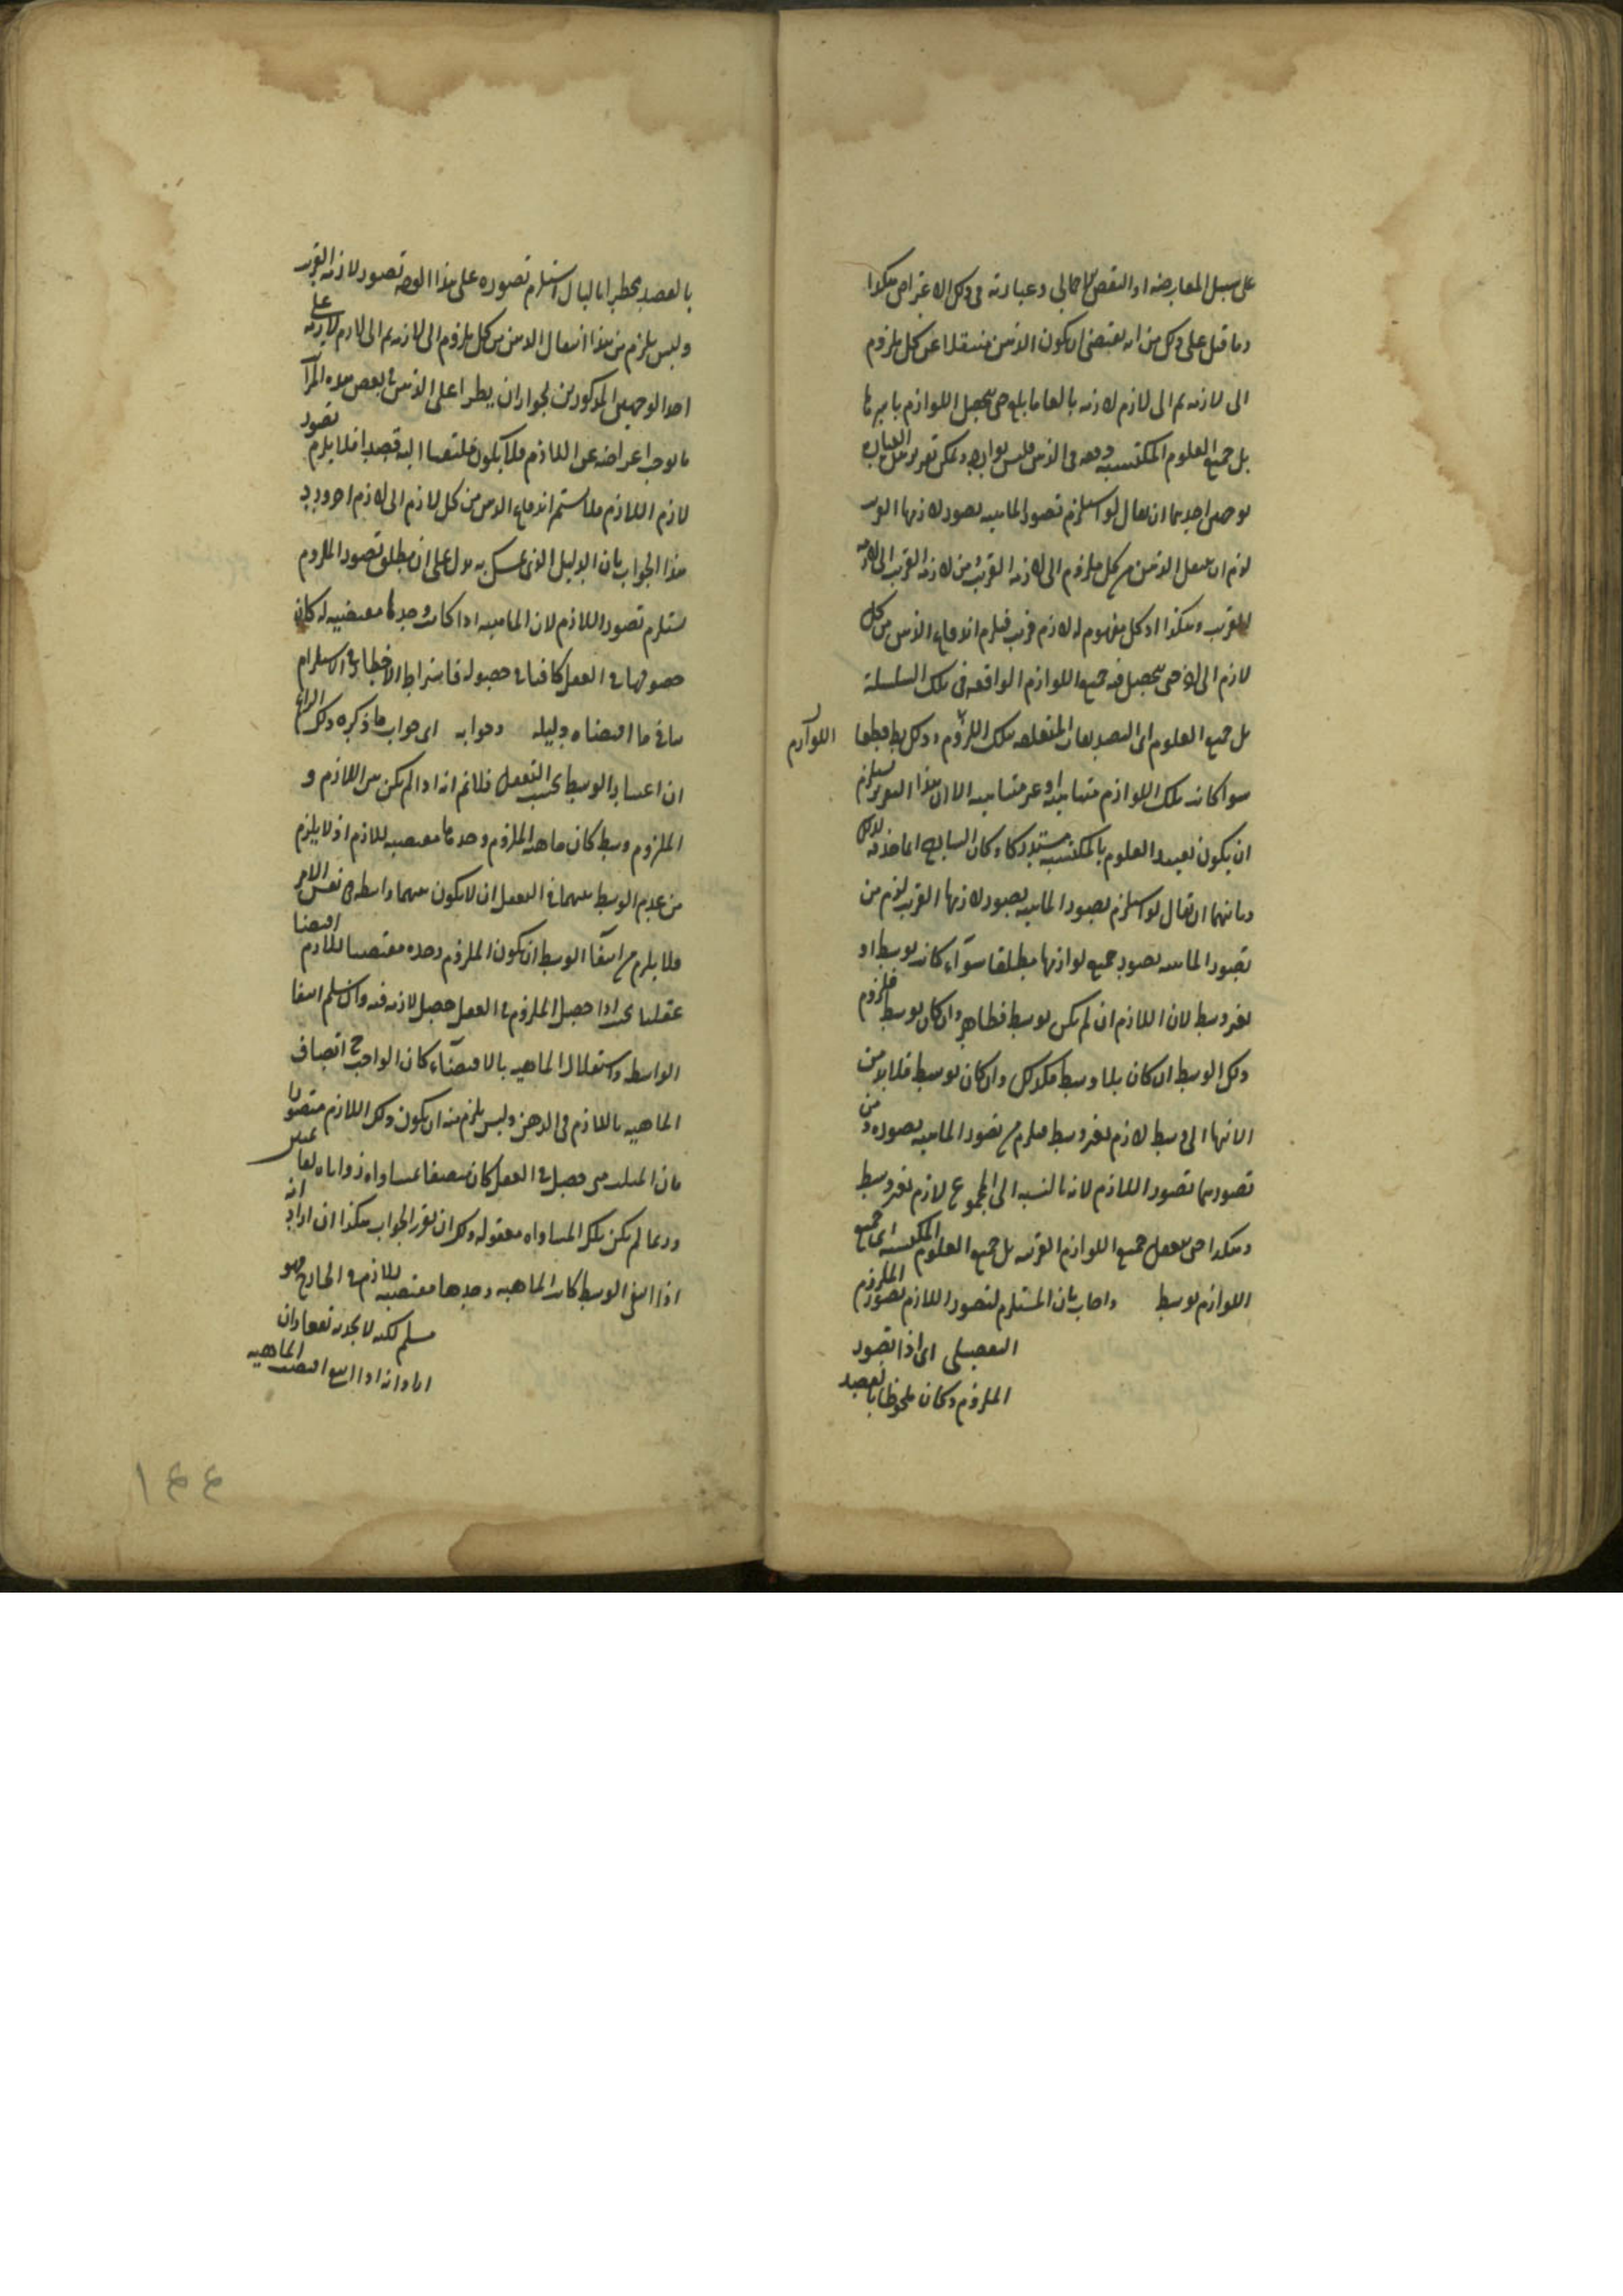 على سبيل المعارضة او النقض الاجمالي وعبارته في ذلك الاعتراض هكذا
وما قيل على ذلك من انه يقتضى ان يكون الذهن منتقلا عن كل ملزوم
الى لازمه ثم الى لازم لازمه بالغا ما بلغ حتى يحصل اللوازم باسرها
بل جميع العلوم المكتسبة دفعة في الذهن فليس بوارد ويمكن تقرير العبارة
بوجهين احدهما ان يقال لو استلزم تصور الماهية تصور لازمها القريب
لزم ان ينتقل الذهن من كل ملزوم الى لازمه القريب ومن لازمه القريب الى لازمه
القريب وهكذا اذ كل مفهوم له لازم قريب فيلزم اندفاع الذهن من كل
لازم الى لازم حتى يحصل فيه جميع اللوازم الواقعة في تلك السلسلة
بل جميع العلوم اى التصديقات المتعلقة بتلك اللزوم وذلك بط قطعا
اللوازم
سواء كانت تلك اللوازم متناهية او غير متناهية الا ان هذا التقرير يستلزم
ان يكون تقييد العلوم بالمكتسبة مستدركا وكان السابح انما حذفه لذلك
وثانيهما ان يقال لو استلزم تصور الماهية تصور لازمها القريب لزم من
تصور الماهية تصور جميع لوازمها مطلقا سواء كانت بوسط او
بغير وسط لان اللازم ان لم يكن بوسط فظاهر وان كان بوسط فلزوم
ذلك الوسط ان كان بلا وسط فكذلك وان كان بوسط فلا بد من
الانتهاء الى وسط لازم بغير وسط فيلزم من تصور الماهية تصوره ومن
تصورهما تصور اللازم لانه بالنسبة الى المجموع لازم بغير وسط
وهكذا حتى يتعقل جميع اللوازم القريبة بل جميع العلوم المكتسبة اى جميع
اللوازم بوسط واجاب بان المستلزم لتصور اللازم تصور الملزوم
التفصيلى اى اذا تصور
الملزوم وكان ملحوظا بالقصد
بالقصد مخطرا بالبال استلزم تصوره على هذا الوجه تصور لازمه القريب
وليس يلزم من هذا انتقال الذهن من كل ملزوم الى لازمه ثم الى لازم لازمه على
احد الوجهين المذكورين لجواز ان يطرا على الذهن في بعض هذه المرات
ما يوجب اعراضه عن اللازم فلا يكون ملتفتا اليه قصدا فلا يلزم تصور
لازم اللازم فلا يستمر اندفاع الذهن من كل لازم الى لازم اخر ورد
هذا الجواب بان الدليل الذى تمسك به يدل على ان مطلق تصور الملزوم
يستلزم تصور اللازم لان الماهية اذا كانت وحدها مقتضية له كان
حصولها في العقل كافيا في حصوله فاشتراط الاخطار في الاستلزام
ينافي ما اقتضاه دليله وجوابه اى جواب ما ذكره ذلك الراد
ان اعتبار الوسط بحسب التعقل فلا نم انه اذا لم يكن بين اللازم و
الملزوم وسط كان ماهية الملزوم وحدها مقتضية للازم اذ لا يلزم
من عدم الوسط بينهما في التعقل ان لا يكون بينهما واسطة في نفس الامر
فلا يلزم من انتفاء الوسط ان يكون الملزوم وحده مقتضيا للازم اقتضاء
عقليا بحيث اذا حصل الملزوم في العقل حصل لازمه فيه وان سلم انتفاء
الواسطة واستقلال الماهية بالاقتضاء كان الواجب ح اتصاف
الماهية باللازم في الذهن وليس يلزم منه ان يكون ذلك اللازم متصورا
فان المثلث متى حصل في العقل كان متصفا بمساواة زواياه لقائمتين
وربما لم يكن تلك المساواة معقولة ولك ان تقرر الجواب هكذا ان اراد انه
اذا انتفى الوسط كانت الماهية وحدها مقتضية للازم في الخارج فهو
مسلم لكنه لا يجديه نفعا وان
اراد انه اذا انتفى اقتضت الماهية
١٤٤